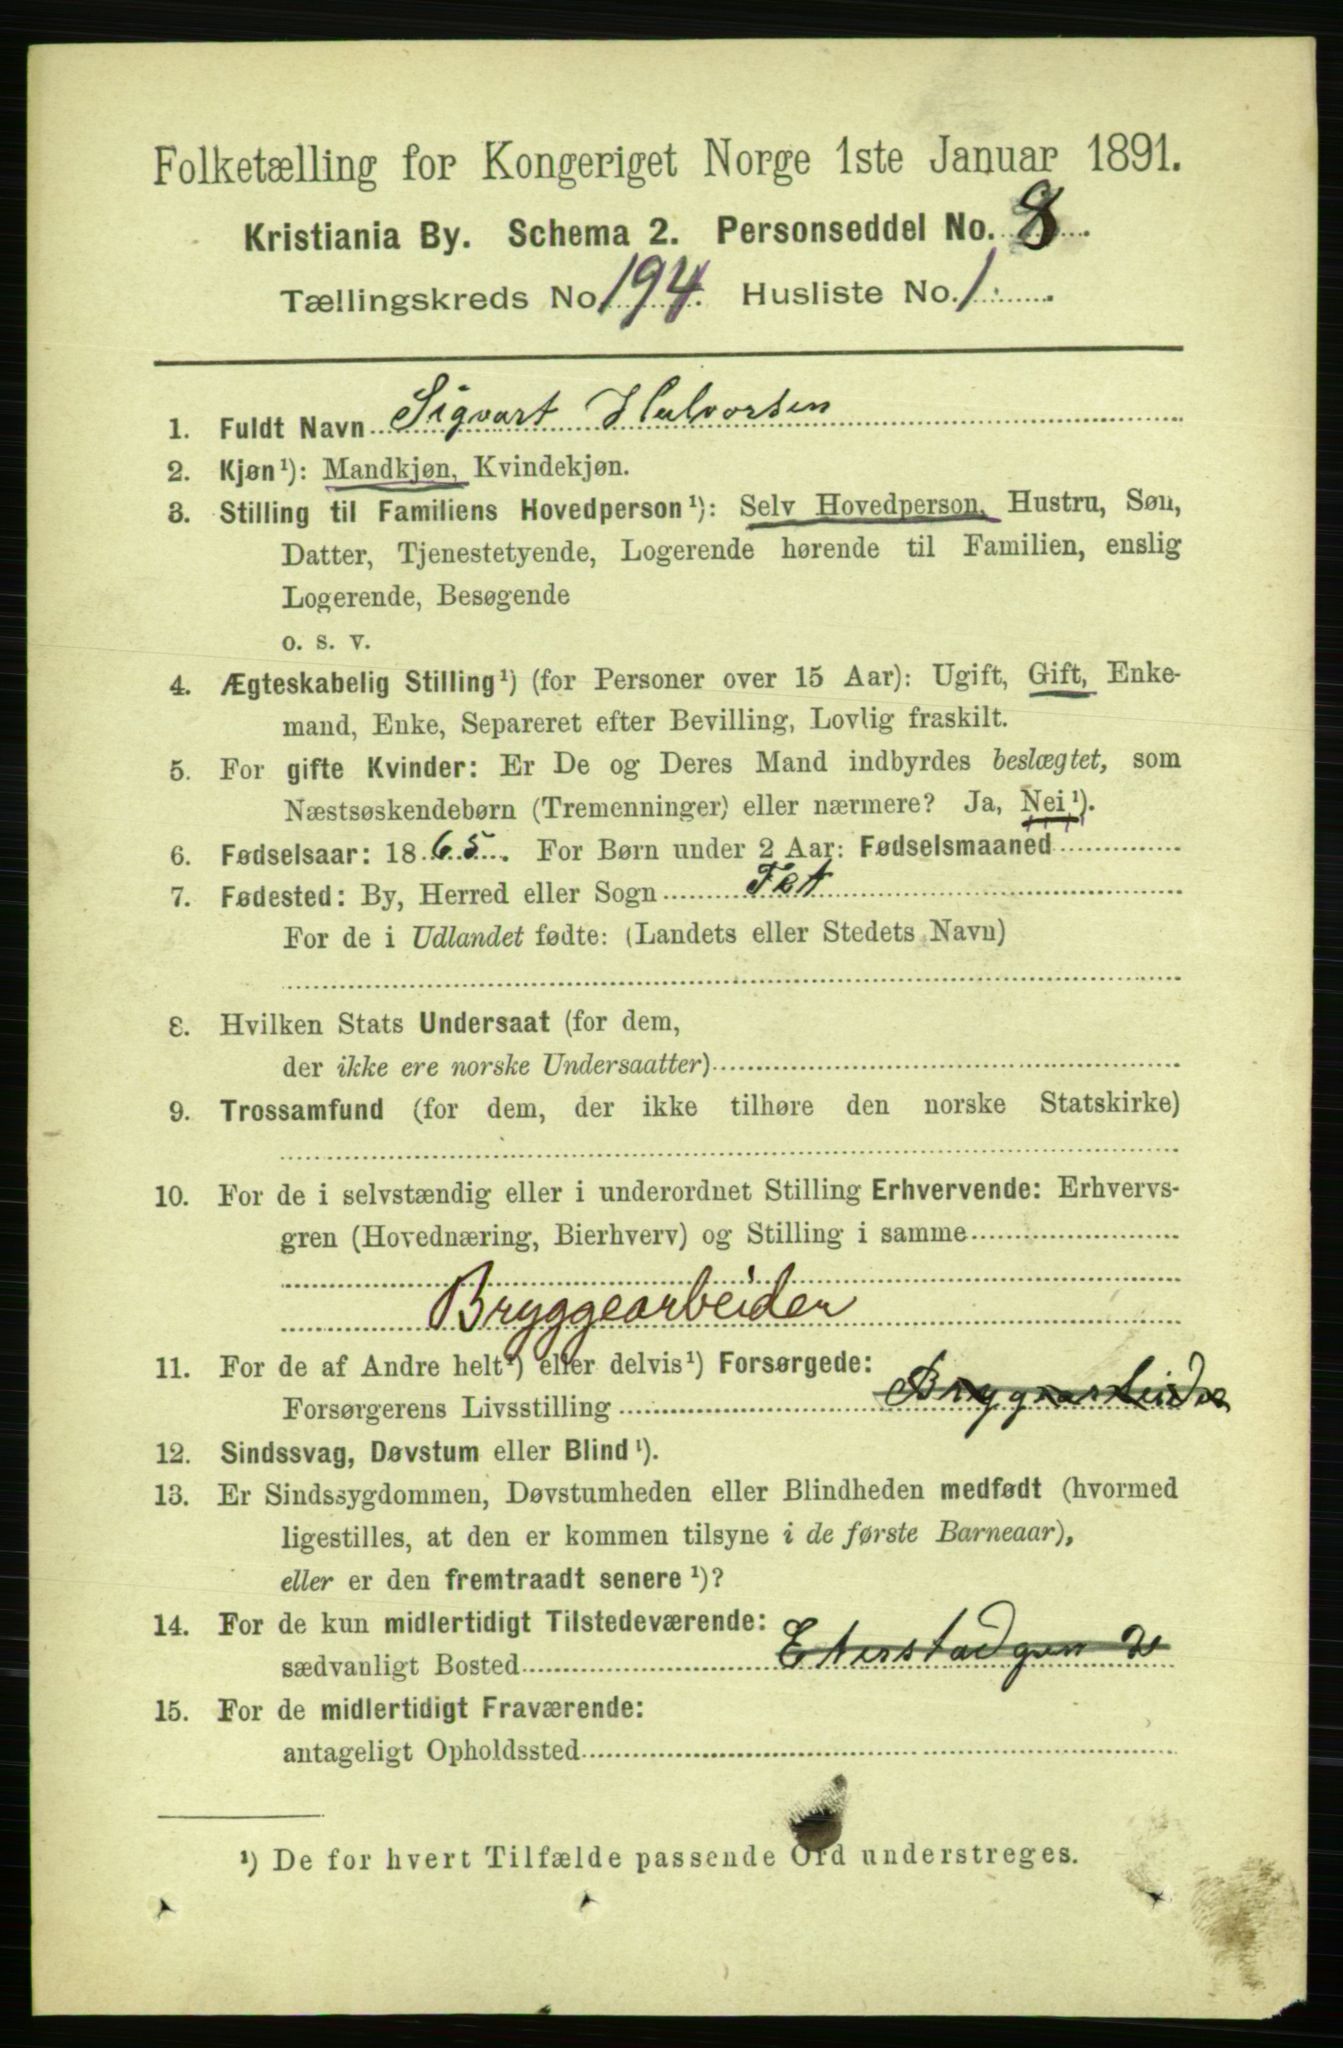 Folketælling for Kongeriget Norge 1ste Januar 1891.
Kristiania By. Schema 2. Personseddel No. 8.
Tællingskreds No. 194. Husliste No. 1.
1. Fuldt Navn Sigvart Halvorsen
2. Kjøn¹): Mandkjøn, Kvindekjøn.
3. Stilling til Familiens Hovedperson¹): Selv Hovedperson, Hustru, Søn,
Datter, Tjenestetyende, Logerende hørende til Familien, enslig
Logerende, Besøgende
o. s. v.
4. Ægteskabelig Stilling¹) (for Personer over 15 Aar): Ugift, Gift, Enke-
mand, Enke, Separeret efter Bevilling, Lovlig fraskilt.
5. For gifte Kvinder: Er De og Deres Mand indbyrdes beslægtet, som
Næstsøskendebørn (Tremenninger) eller nærmere? Ja, Nei¹).
6. Fødselsaar: 1865. For Børn under 2 Aar: Fødselsmaaned
7. Fødested: By, Herred eller Sogn Fet
For de i Udlandet fødte: (Landets eller Stedets Navn)
8. Hvilken Stats Undersaat (for dem,
der ikke ere norske Undersaatter)
9. Trossamfund (for dem, der ikke tilhøre den norske Statskirke)
10. For de i selvstændig eller i underordnet Stilling Erhvervende: Erhvervs-
gren (Hovednæring, Bierhverv) og Stilling i samme
Bryggearbeider
11. For de af Andre helt¹) eller delvis¹) Forsørgede:
Forsørgerens Livsstilling Bryggearbeider
12. Sindssvag, Døvstum eller Blind¹).
13. Er Sindssygdommen, Døvstumheden eller Blindheden medfødt (hvormed
ligestilles, at den er kommen tilsyne i de første Barneaar),
eller er den fremtraadt senere¹)?
14. For de kun midlertidigt Tilstedeværende:
sædvanligt Bosted Eterstadgen
15. For de midlertidigt Fraværende:
antageligt Opholdssted
¹) De for hvert Tilfælde passende Ord understreges.